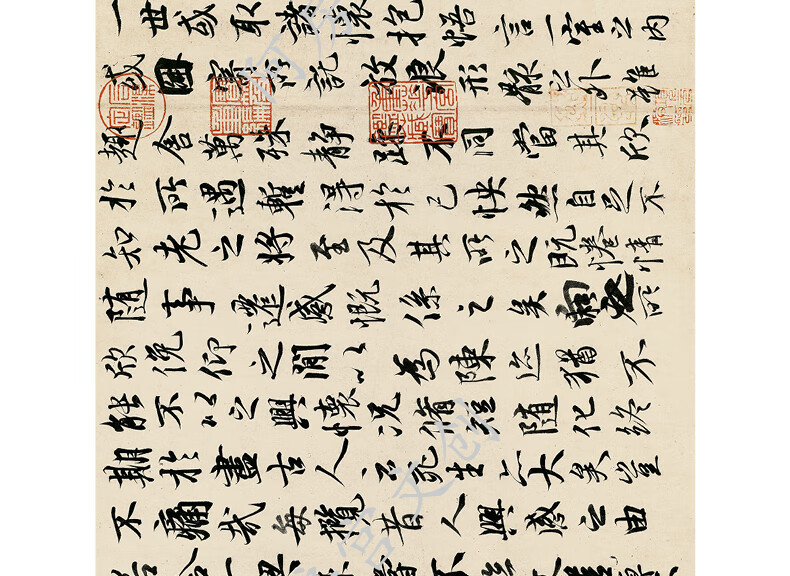 一世或取諸懷抱悟言一室之內
或因寄所託放浪形骸之外雖
趣舍萬殊靜躁不同當其欣
於所遇蹔得於己怏然自足不
知老之將至及其所之既惓情
隨事遷感慨係之矣向之所
欣俛仰之閒以為陳迹猶不
能不以之興懷況脩短隨化終
期於盡古人云死生亦大矣豈
不痛哉每攬昔人興感之由
文创